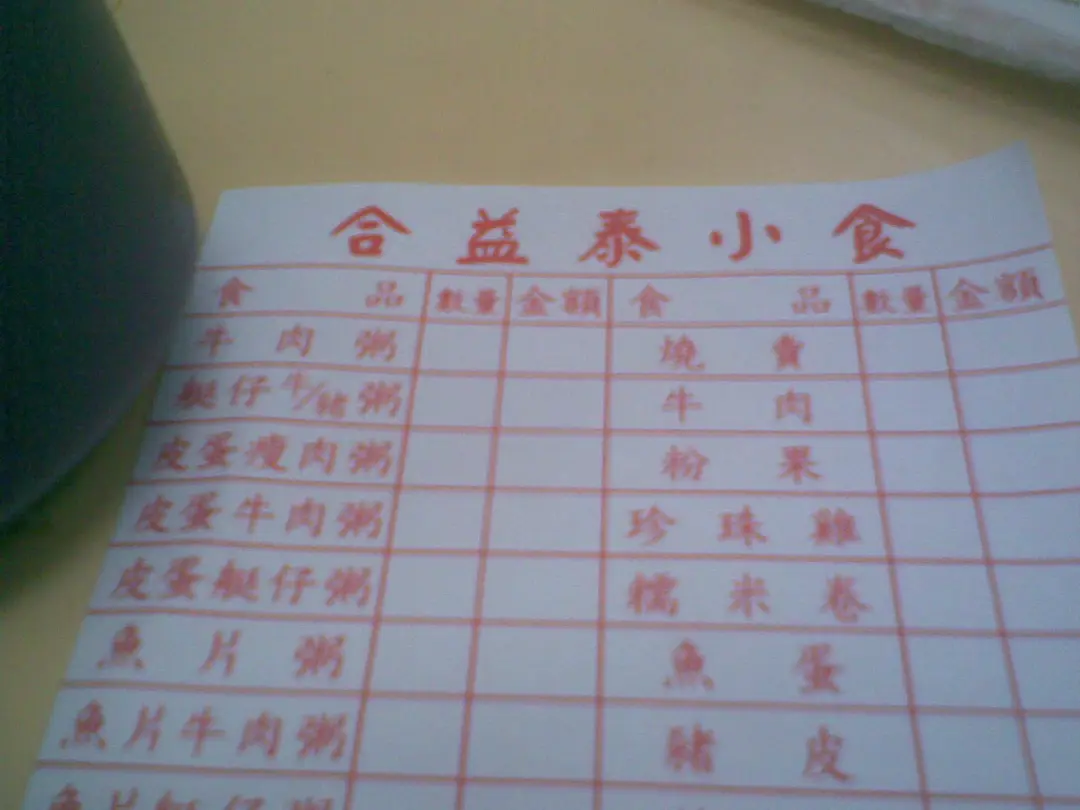 合益泰小食
食品 數量 金額 食品 數量 金額
牛肉粥 燒賣
艇仔牛/豬粥 牛肉
皮蛋瘦肉粥 粉果
皮蛋牛肉粥 珍珠雞
皮蛋艇仔粥 糯米卷
魚片粥 魚蛋
魚片牛肉粥 豬皮
魚片艇仔粥